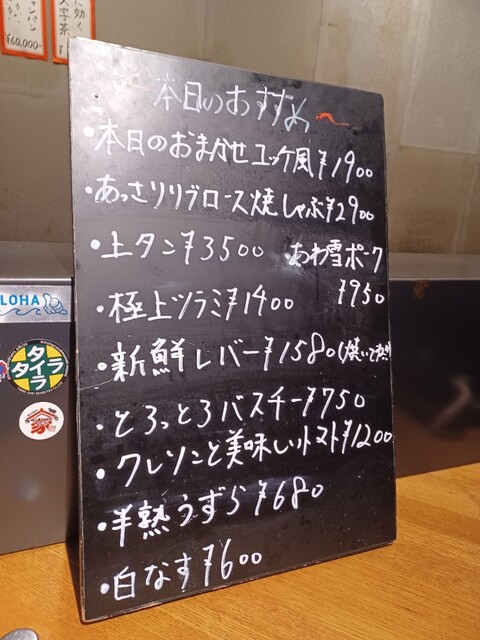 に効く
文字茶
ャンパン
か
¥60,000-
本日のおすすめ〜
・本日のおまかせユッケ風¥1900
・あっさりリブロース焼しゃぶ¥2900
・上タン¥3500
あわ雪ポーク
¥950
・極上ツラミ¥1400
・新鮮レバー¥1580
・とろっとろバスチー¥750
・クレソンと美味しいトマト¥1200
・半熟うずら¥680
・白なす¥600
LOHA
タイラ
タイラ